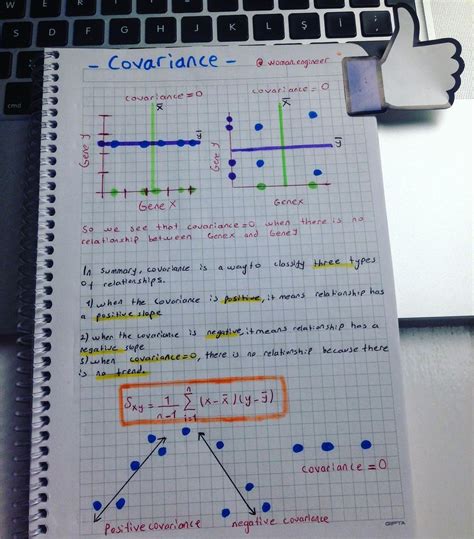 - Covariance -
@ woman.engineer
covariance = 0
covariance = 0
x̄
x̄
ȳ
ȳ
Gene Y
Gene Y
Gene X
Genex
So we see that covariance = 0 when there is no
relationship between Genex and GeneY
In summary, covariance is a way to classify three types
of relationships.
1) when the covariance is positive, it means relationship has
a positive slope
2) when the covariance is negative, it means relationship has a
negative slope
3) when covariance = 0, there is no relationship because there
is no trend.
S_xy = 1/(n-1) Σ_{i=1}^{n} (x - x̄)(y - ȳ)
covariance = 0
Positive covariance
negative covariance
GIPTA
cmd